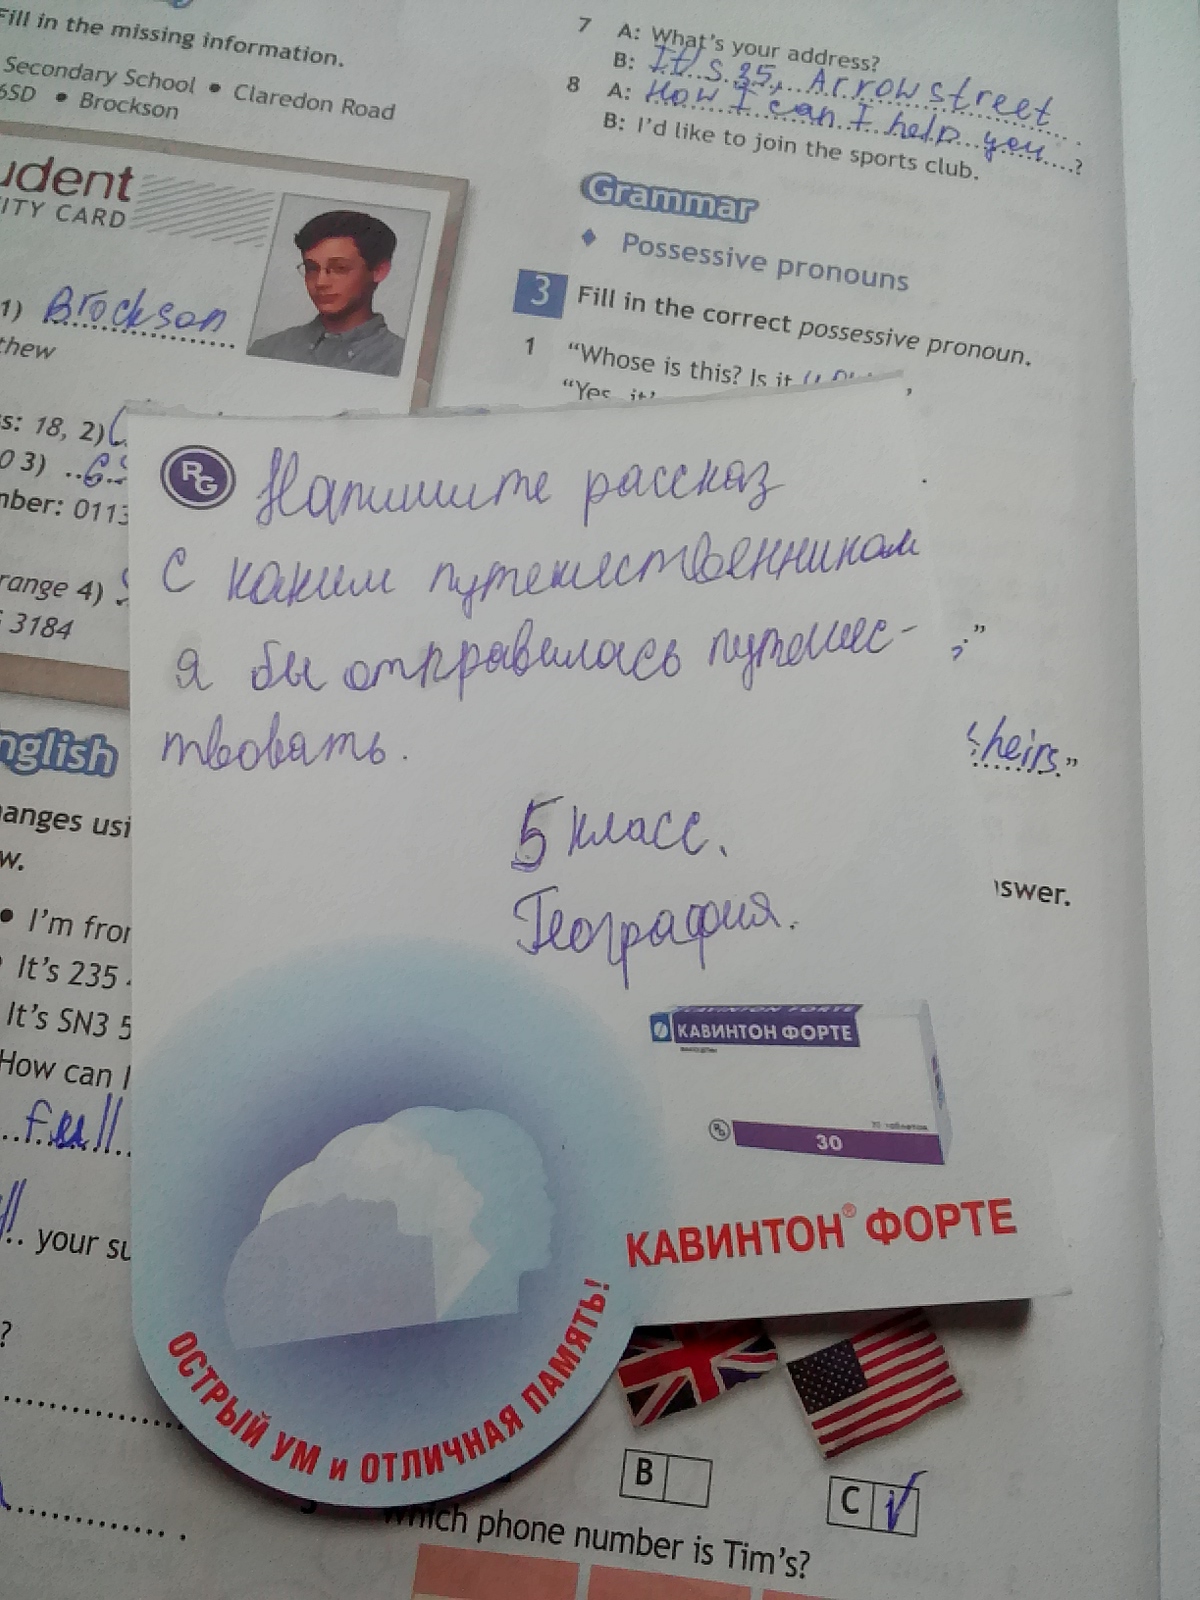 Fill in the missing information.
Secondary School • Claredon Road
6SD • Brockson
udent
ITY CARD
1) Brockson
thew
s: 18, 2)
0 3)
nber: 0113
range 4)
3184
nglish
anges usi
w.
• I'm fror
It's 235
It's SN3 5
How can I
full
your su
?
7 A: What's your address?
B: It's 35, Arrow street
8 A: How I can I help you ?
B: I'd like to join the sports club.
Grammar
♦ Possessive pronouns
3 Fill in the correct possessive pronoun.
1 “Whose is this? Is it
“Yes, it'
theirs.”
swer.
RG Напишите рассказ
с каким путешественником
я бы отправилась путешес-
твовать.
5 класс.
География.
КАВИНТОН ФОРТЕ
30
КАВИНТОН® ФОРТЕ
ОСТРЫЙ УМ и ОТЛИЧНАЯ ПАМЯТЬ!
B
C
Which phone number is Tim's?